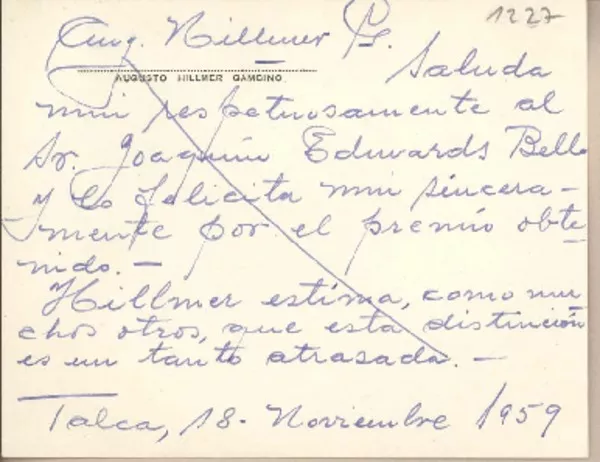 1227
Aug. Hillmer G. Saluda
AUGUSTO HILLMER GAMBINO
mui respetuosamente al
Sr. Joaquín Edwards Bello
y lo felicita mui sincera-
mente por el premio obte-
nido.-
Hillmer estima, como mu
chos otros, que esta distinción
es un tanto atrasada.-
Talca, 18- Noviembre 1959